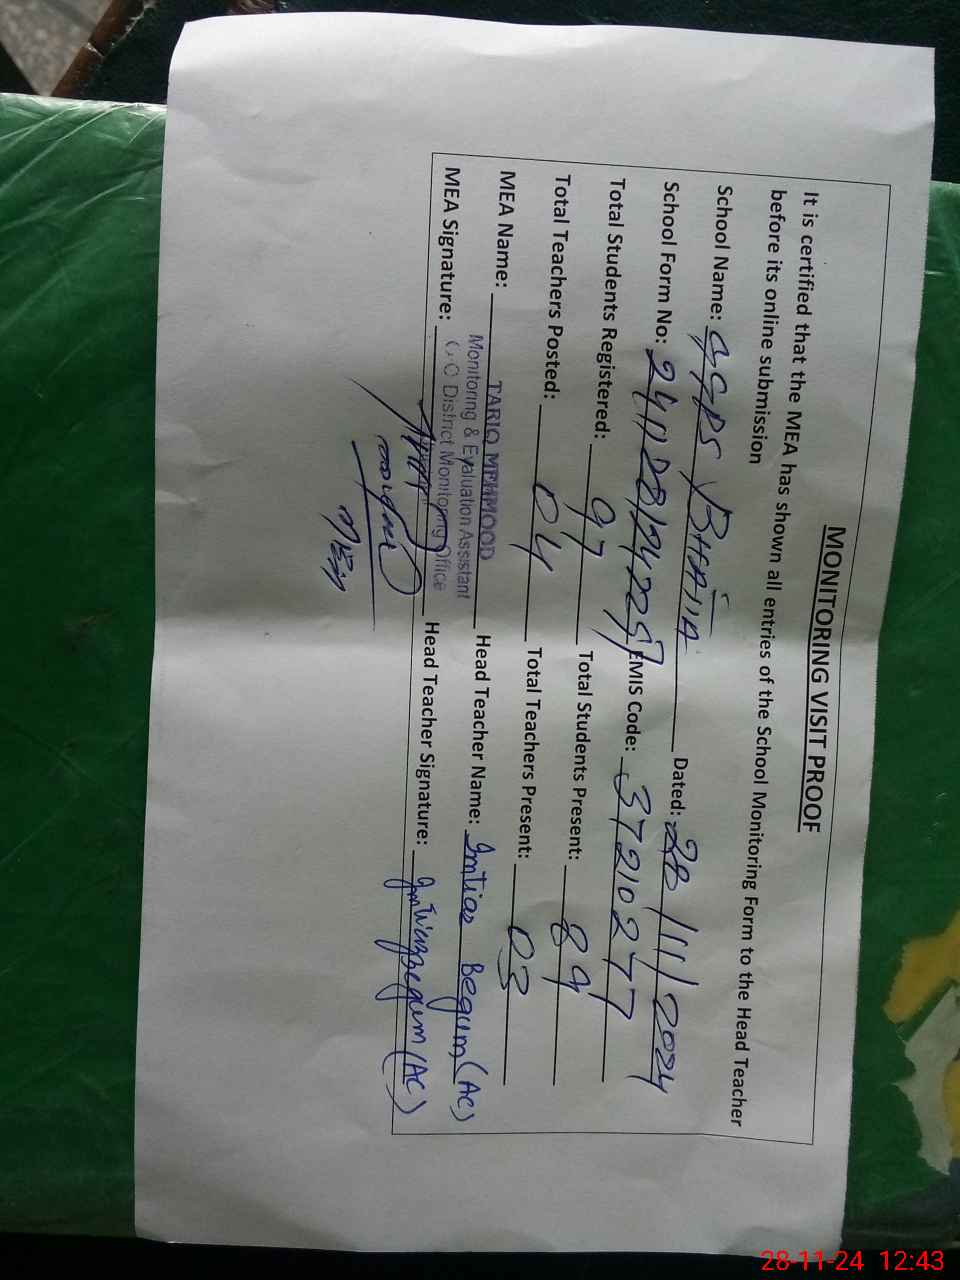 MONITORING VISIT PROOF
It is certified that the MEA has shown all entries of the School Monitoring Form to the Head Teacher
before its online submission
School Name: GGPS BHATIA Dated: 28/11/2024
School Form No: EMIS Code: 37210277
Total Students Registered: 97 Total Students Present: 89
Total Teachers Posted: 04 Total Teachers Present: 03
MEA Name: TARIQ MEHMOOD Head Teacher Name: Imtiaz Begum (AC)
Monitoring & Evaluation Assistant
MEA Signature: District Monitoring Office Head Teacher Signature: Imtiaz begum (AC)
28-11-24 12:43